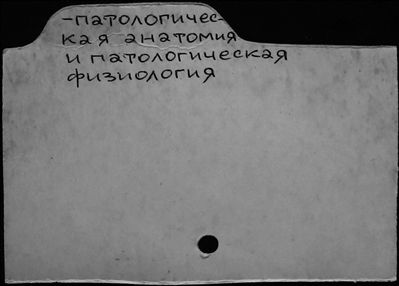 -патологичес-
кая анатомия
и патологическая
физиология